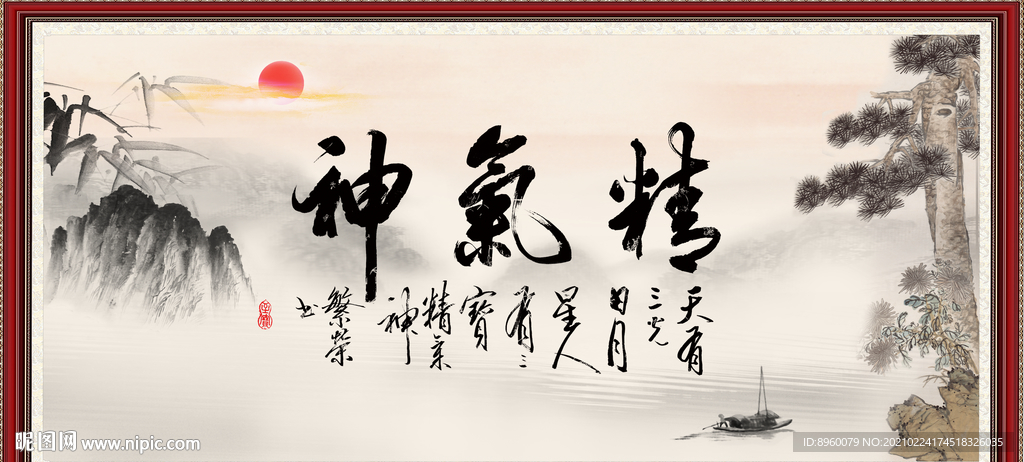 精氣神
天有
三光
日月
星人
有三
寶
精氣
神
繁榮
书
昵图网 www.nipic.com
ID:8960079 NO:20210224174518326035